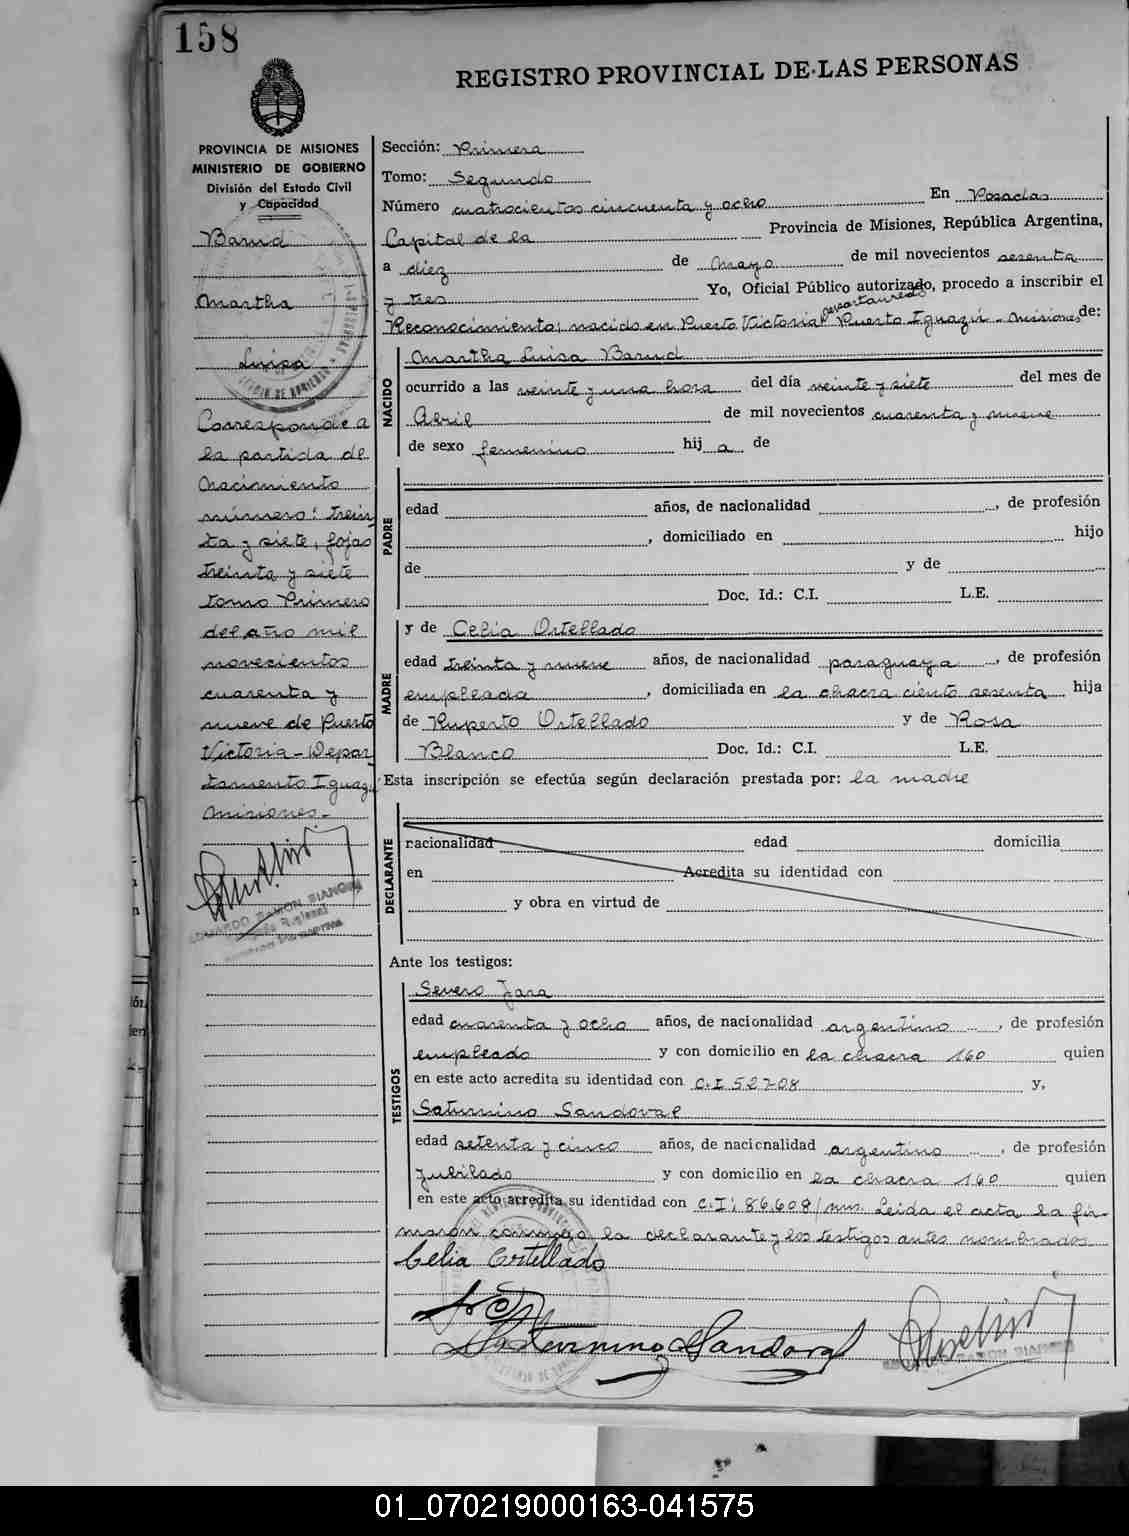 158
REGISTRO PROVINCIAL DE LAS PERSONAS
PROVINCIA DE MISIONES
MINISTERIO DE GOBIERNO
División del Estado Civil
y Capacidad
Barud
Martha
Luisa
Corresponde a
la partida de
nacimiento
número: trein
ta y siete, fojas
treinta y siete
tomo Primero
del año mil
novecientos
cuarenta y
nueve de Puerto
Victoria - Depar
tamento Iguazú
Misiones.-
EDUARDO RAMON BIANCHI
Sección: Primera
Tomo: Segundo
Número cuatrocientos cincuenta y ocho En Posadas
Capital de la Provincia de Misiones, República Argentina,
a diez de Mayo de mil novecientos sesenta
y tres Yo, Oficial Público autorizado, procedo a inscribir el
Reconocimiento; nacido en Puerto Victoria departamento Puerto Iguazú - Misiones de:
NACIDO
Martha Luisa Barud
ocurrido a las veinte y una hora del día veinte y siete del mes de
Abril de mil novecientos cuarenta y nueve
de sexo femenino hij a de
PADRE
edad años, de nacionalidad , de profesión
, domiciliado en hijo
de y de
Doc. Id.: C.I. L.E.
MADRE
y de Celia Ortellado
edad treinta y nueve años, de nacionalidad paraguaya , de profesión
empleada , domiciliada en la chacra ciento sesenta hija
de Ruperto Ortellado y de Rosa
Blanco Doc. Id.: C.I. L.E.
Esta inscripción se efectúa según declaración prestada por: la madre
DECLARANTE
nacionalidad edad domicilia
en Acredita su identidad con
y obra en virtud de
Ante los testigos:
TESTIGOS
Severo Jara
edad cuarenta y ocho años, de nacionalidad argentino , de profesión
empleado y con domicilio en la chacra 160 quien
en este acto acredita su identidad con C.I 52708 y,
Saturnino Sandoval
edad setenta y cinco años, de nacionalidad argentino , de profesión
jubilado y con domicilio en la chacra 160 quien
en este acto acredita su identidad con C.I; 86.608/ mns. Leida el acta la fir-
maron conmigo la declarante y los testigos antes nombrados
Celia Ortellado
Saturnino Sandoval
RAMON BIANCHI
01_070219000163-041575